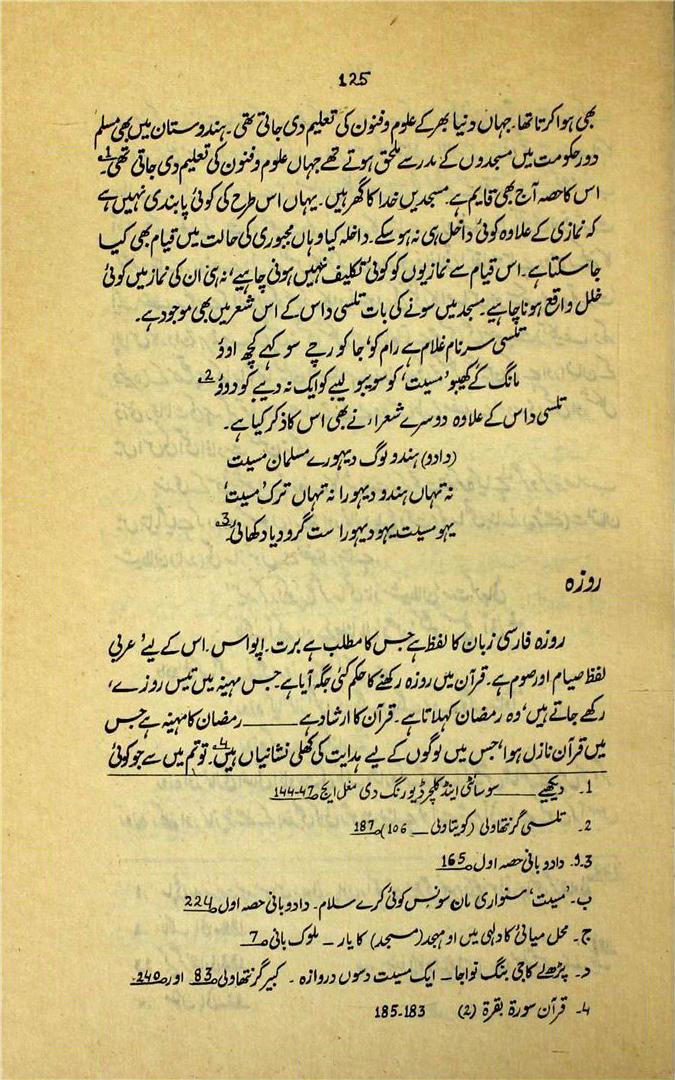 125
بھی ہوا کرتا تھا۔ جہاں دنیا بھر کے علوم و فنون کی تعلیم دی جاتی تھی۔ ہندوستان میں بھی مسلم
دور حکومت میں مسجدوں کے مدرسے ملحق ہوتے تھے جہاں علوم و فنون کی تعلیم دی جاتی تھی۔1
اس کا حصہ آج بھی قایم ہے۔ مسجدیں خدا کا گھر ہیں۔ یہاں اس طرح کی کوئی پابندی نہیں ہے
کہ نمازی کے علاوہ کوئی داخل ہی نہ ہو سکے۔ داخلہ کیا وہاں مجبوری کی حالت میں قیام بھی کیا
جا سکتا ہے۔ اس قیام سے نمازیوں کو کوئی تکلیف نہیں ہونی چاہیے، نہ ہی ان کی نماز میں کوئی
خلل واقع ہونا چاہیے۔ مسجد میں سونے کی بات تلسی داس کے اس شعر میں بھی موجود ہے۔
تلسی سرنام غلام ہے رام کو، جا کو رچے سو کہے کچھ اوؤ
مانگ کے کھیبو 'مسیت' کو سویبو لیبے کو ایک نہ دیبے کو دوؤ2
تلسی داس کے علاوہ دوسرے شعراء نے بھی اس کا ذکر کیا ہے۔
(دادو) ہندو لوگ دیہورے مسلمان مسیت
نہ تہاں ہندو دیہورا نہ تہاں ترک 'مسیت'
یہو مسیت یہو دیہورا ست گرو دیا دکھائی۔3
روزہ
روزہ فارسی زبان کا لفظ ہے جس کا مطلب ہے برت۔ اپواس۔ اس کے لیے عربی
لفظ صیام اور صوم ہے۔ قرآن میں روزہ رکھنے کا حکم کئی جگہ آیا ہے۔ جس مہینہ میں تیس روزے،
رکھے جاتے ہیں، وہ رمضان کہلاتا ہے۔ قرآن کا ارشاد ہے ـــــ رمضان کا مہینہ ہے جس
میں قرآن نازل ہوا، جس میں لوگوں کے لیے ہدایت کی کھلی نشانیاں ہیں۔4 تو تم میں سے جو کوئی
1۔ دیکھیے ـــــ سوسائٹی اینڈ کلچر ڈیورنگ دی مغل ایج 47-144
2۔ تلسی گرنتھاولی (کویتاولی ــ 106) 187
3۔ د۔ دادو بانی حصہ اول 165
ب۔ 'میت' سنواری مان سونس کوئی کرے سلام۔ دادو بانی حصہ اول 224
ج۔ محل میانی کا دلہی میں او مہجد (مسجد) کا یار ۔ ملوک بانی 7
د۔ پڑھلے کاجی بنگ نواجا ۔ ایک مسیت دسوں دروازہ ۔ کبیر گرنتھاولی 83 اور 240
4۔ قرآن سورۃ بقرۃ (2) 183-185